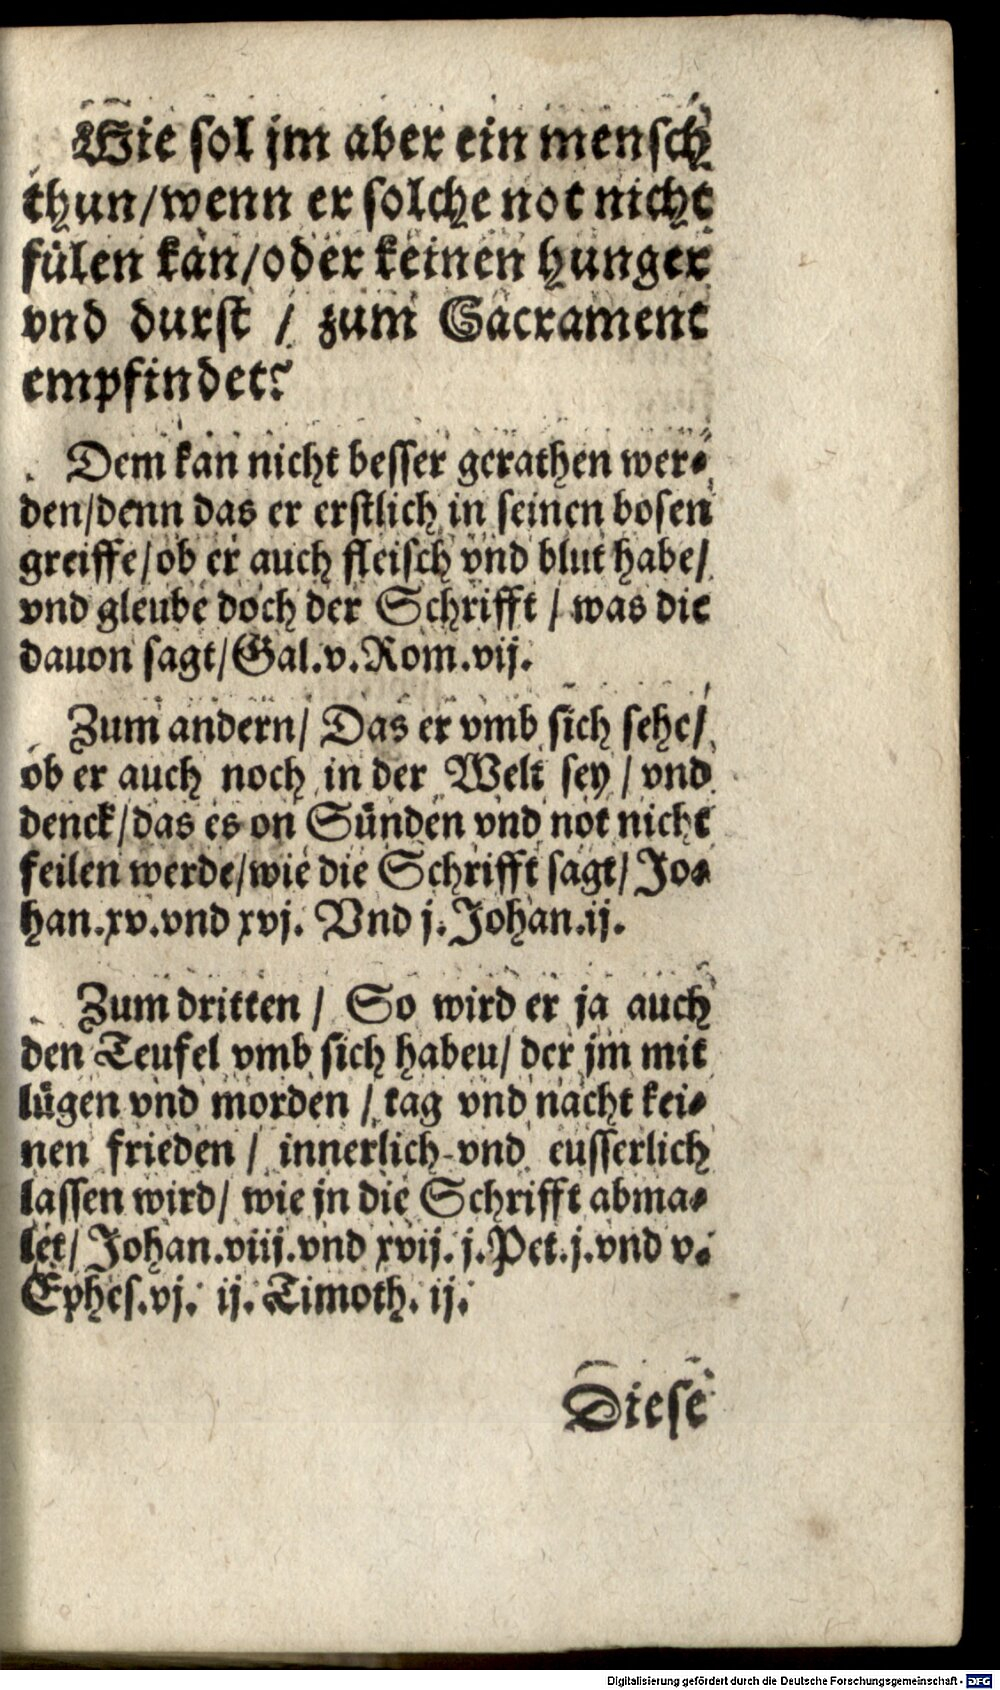 Wie sol jm aber ein mensch
thun/wenn er solche not nicht
fülen kan/oder keinen hunger
vnd durst / zum Sacrament
empfindet?
Dem kan nicht besser gerathen wer-
den/denn das er erstlich in seinen bosen
greiffe/ob er auch fleisch vnd blut habe/
vnd gleube doch der Schrifft / was die
dauon sagt/Gal.v.Rom.vij.
Zum andern/ Das er vmb sich sehe/
ob er auch noch in der Welt sey / vnd
denck/das es on Sünden vnd not nicht
feilen werde/wie die Schrifft sagt/ Jo-
han.xv.vnd xvj. Vnd j.Johan.ij.
Zum dritten / So wird er ja auch
den Teufel vmb sich habeu/ der jm mit
lügen vnd morden / tag vnd nacht kei-
nen frieden / innerlich vnd eusserlich
lassen wird/ wie jn die Schrifft abma-
let/ Johan.viij.vnd xvij. j.Pet.j.vnd v.
Ephes.vj. ij.Timoth. ij.
Diese
Digitalisierung gefördert durch die Deutsche Forschungsgemeinschaft - DFG